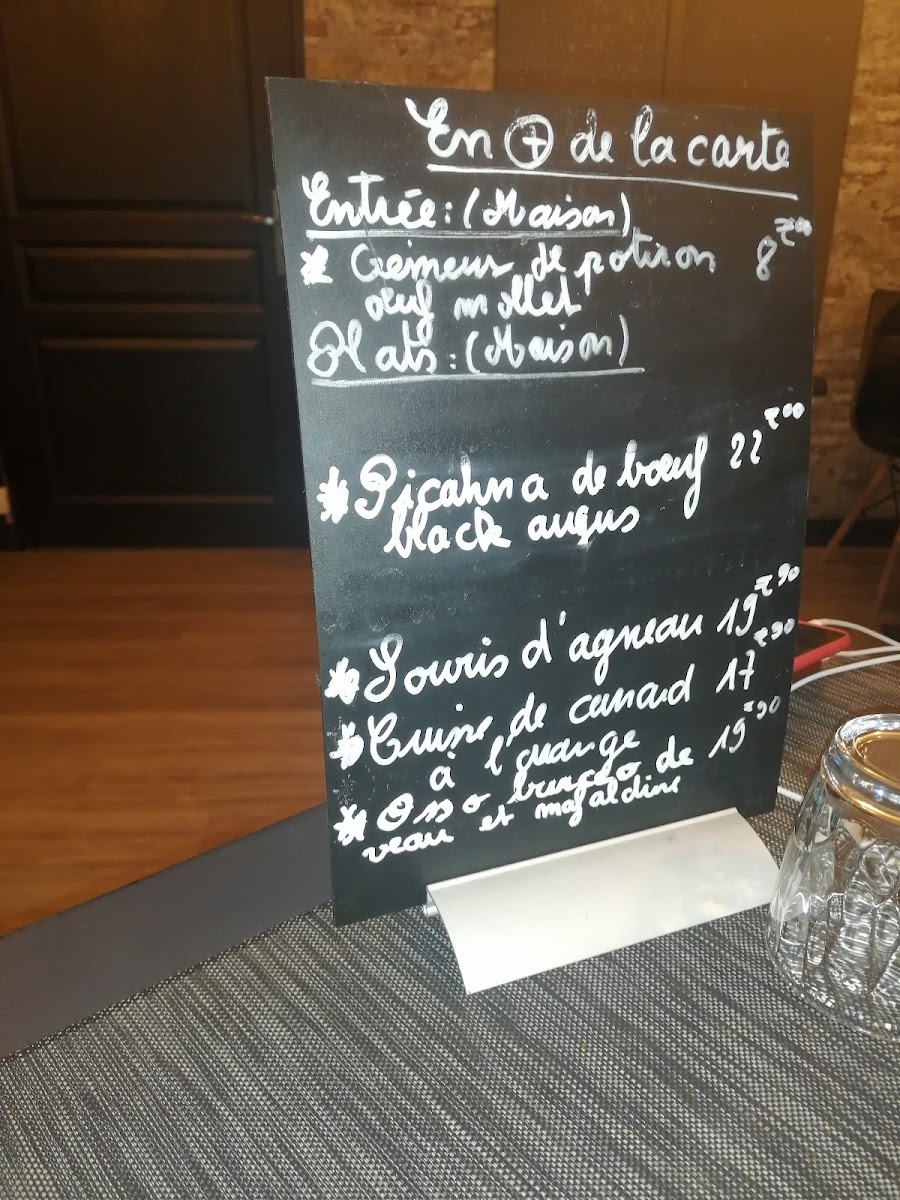 En + de la carte
Entrée : (Maison)
* Crémeux de potiron 8€00
œuf mollet
Plats : (Maison)
* Picahna de bœuf 22€00
black angus
* Souris d'agneau 19€90
* Cuisse de canard 17€90
à l'orange
* Osso bucco de 19€90
veau et mafaldine